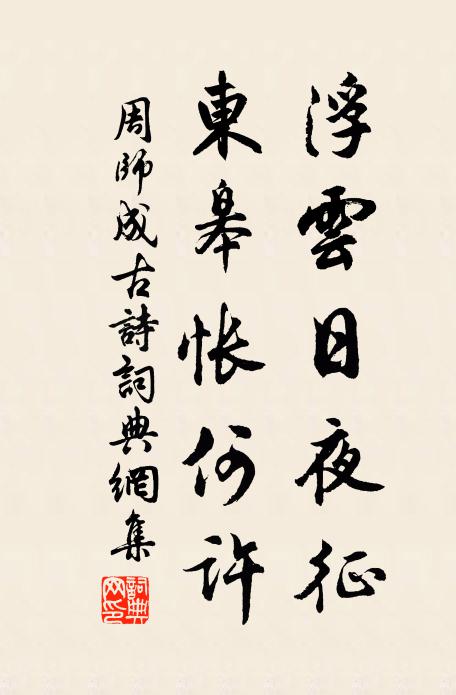 浮雲日夜征
東皋悵何許
周師成古詩詞典網集
詞典网印